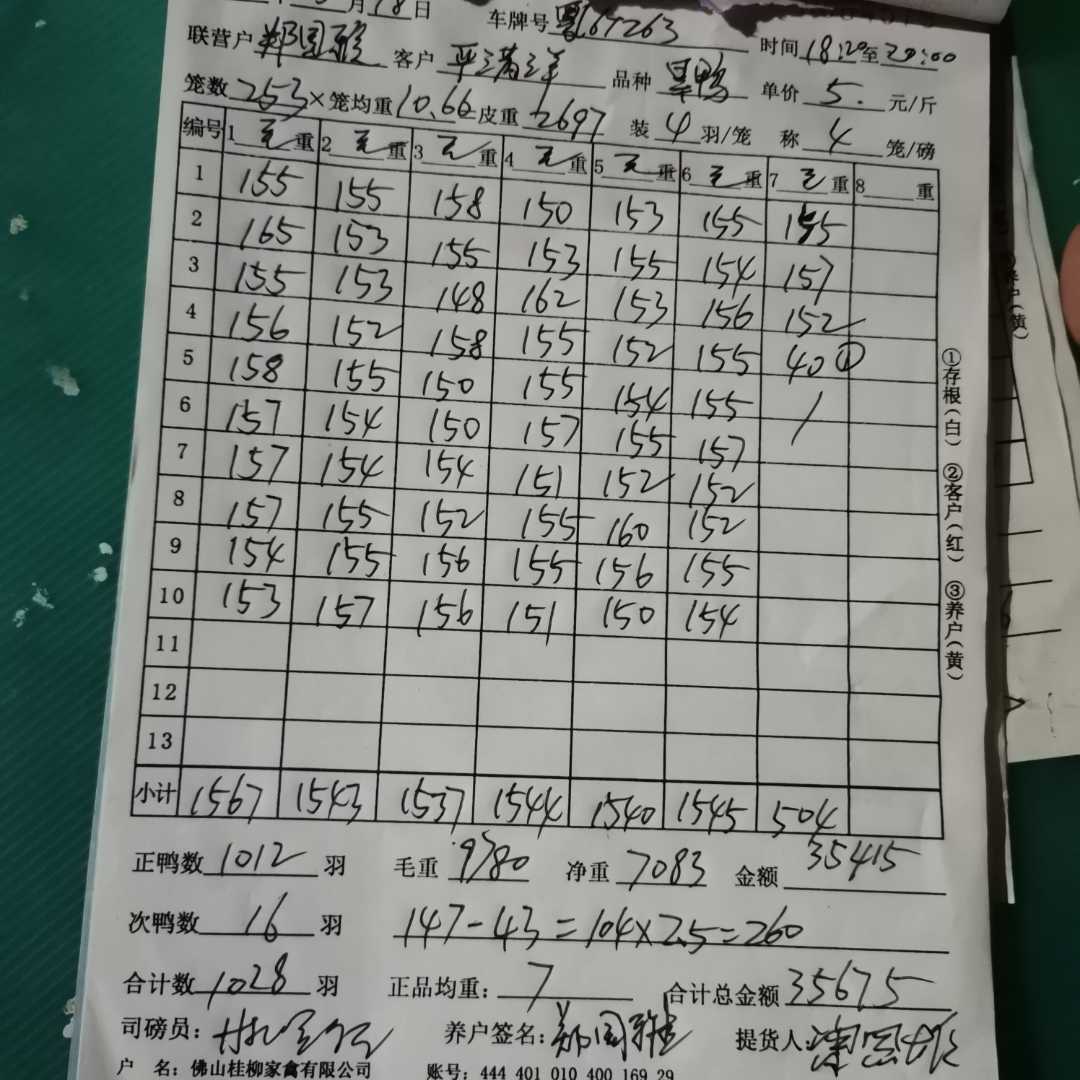 月18日 车牌号 67263 时间18:20至20:00
联营户 郑国雅 客户 平三满三洋 品种 旱鸭 单价 5. 元/斤
笼数 253 × 笼均重 10.66 皮重 2697 装 4 羽/笼 称 4 笼/磅
编号 1 毛 重 2 毛 重 3 毛 重 4 毛 重 5 毛 重 6 毛 重 7 毛 重 8 重
1 155 155 158 150 153 155 155
2 165 153 155 153 155 154 157
3 155 153 148 162 153 156 152
4 156 152 158 155 152 155 40①
5 158 155 150 155 154 155 /
6 157 154 150 157 155 157
7 157 154 154 151 152 152
8 157 155 152 155 160 152
9 154 155 156 155 156 155
10 153 157 156 151 150 154
11
12
13
小计 1567 1543 1537 1544 1540 1545 504
正鸭数 1012 羽 毛重 9780 净重 7083 金额 35415
次鸭数 16 羽 147-43=104×2.5=260
合计数 1028 羽 正品均重: 7 合计总金额 35675
司磅员: 养户签名: 郑国雅 提货人:
户 名: 佛山桂柳家禽有限公司 账号: 444 401 010 400 169 29
①存根(白) ②客户(红) ③养户(黄)